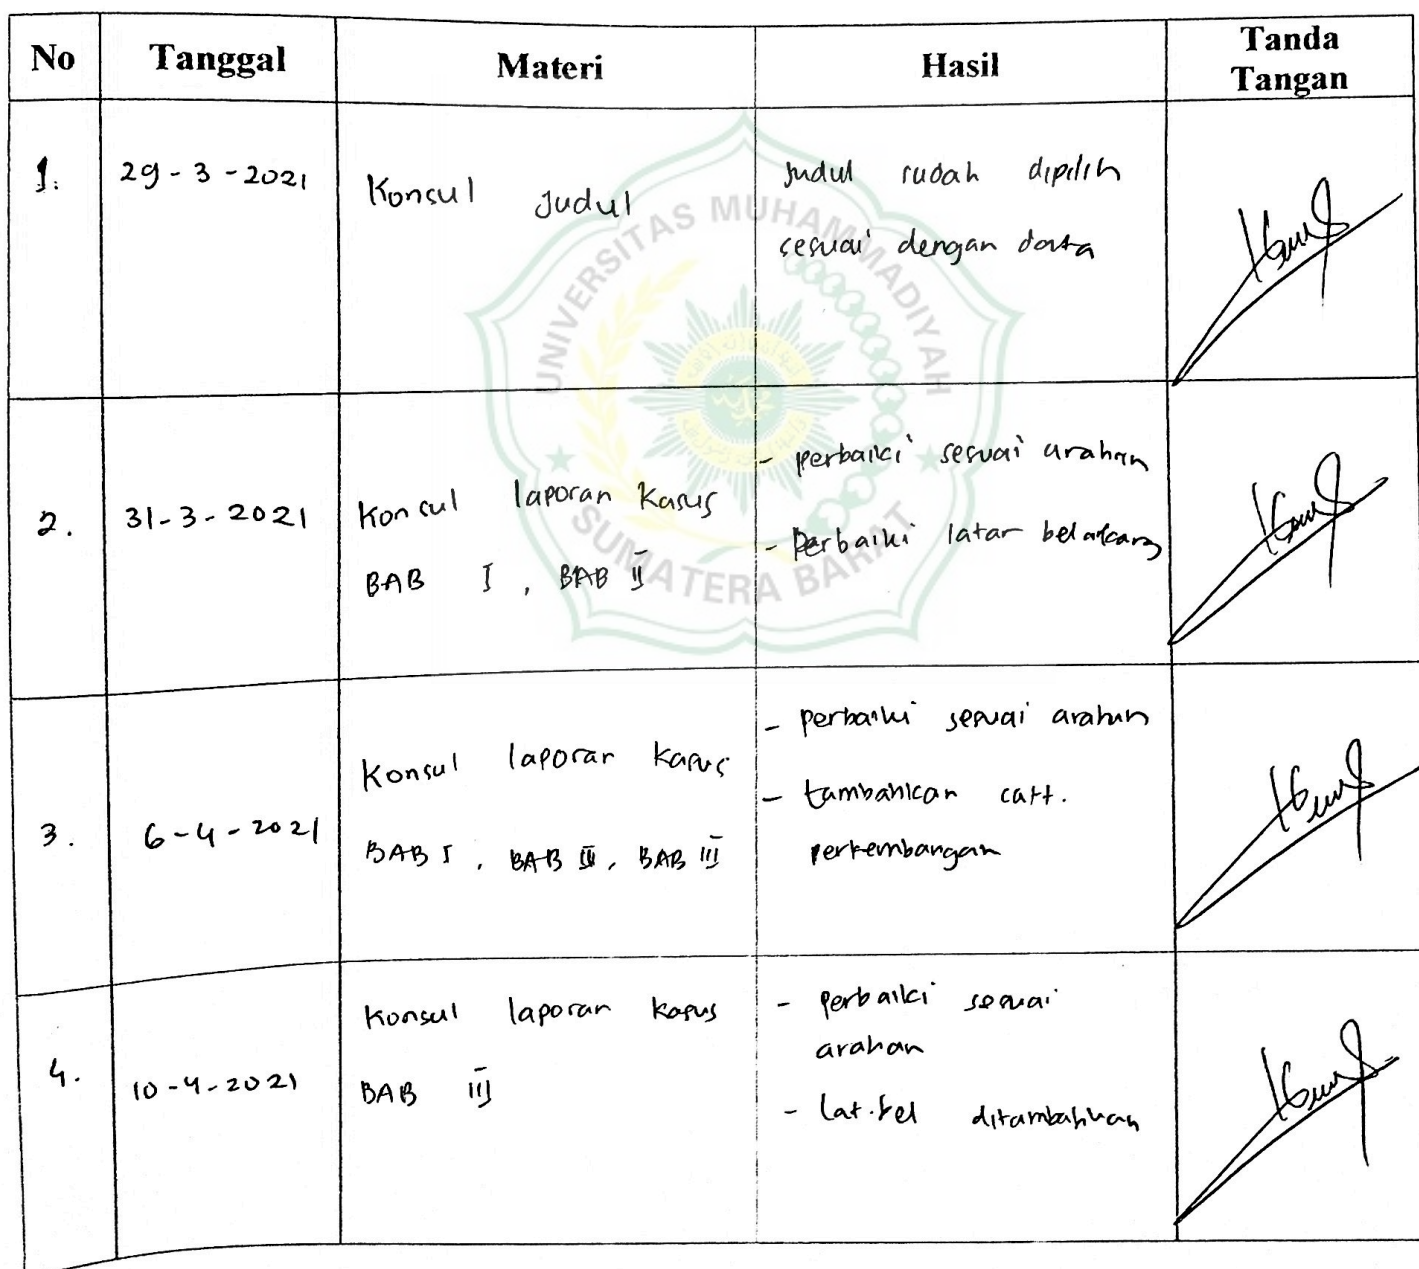 No Tanggal Materi Hasil Tanda Tangan
1. 29-3-2021 Konsul Judul Judul sudah dipilih
sesuai dengan data
2. 31-3-2021 Konsul laporan Kasus
BAB I, BAB II
- perbaiki sesuai arahan
- Perbaiki latar belakang
3. 6-4-2021 Konsul laporan Kasus
BAB I, BAB II, BAB III
- perbaiki sesuai arahan
- tambahkan catt.
perkembangan
4. 10-4-2021 Konsul laporan kasus
BAB III
- perbaiki sesuai
arahan
- lat.bel ditambahkan
UNIVERSITAS MUHAMMADIYAH
SUMATERA BARAT